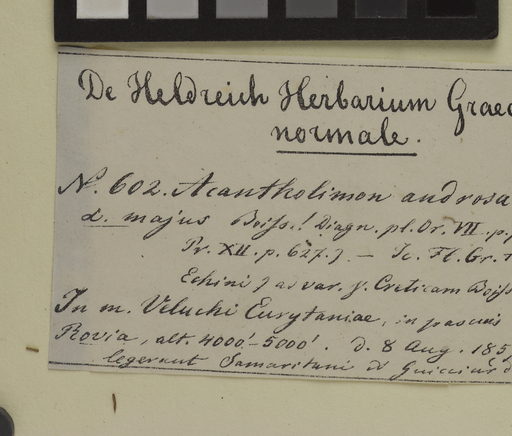 De Heldreich Herbarium Graec
normale.
No. 602. Acantholimon androsa
α. majus Boiss.! Diagn. pl. Or. VII. p.
Pr. XII. p. 627.) — Ic. Fl. Gr. t
Echini) as var. γ. Creticam Boiss
In m. Veluchi Eurytaniae, in pascuis
Rovia, alt. 4000'-5000'. d. 8 Aug. 185
legerunt Samaritani &